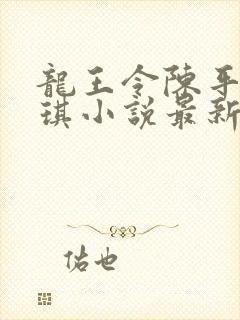 龍王令陳平
琪小說最新
佑也